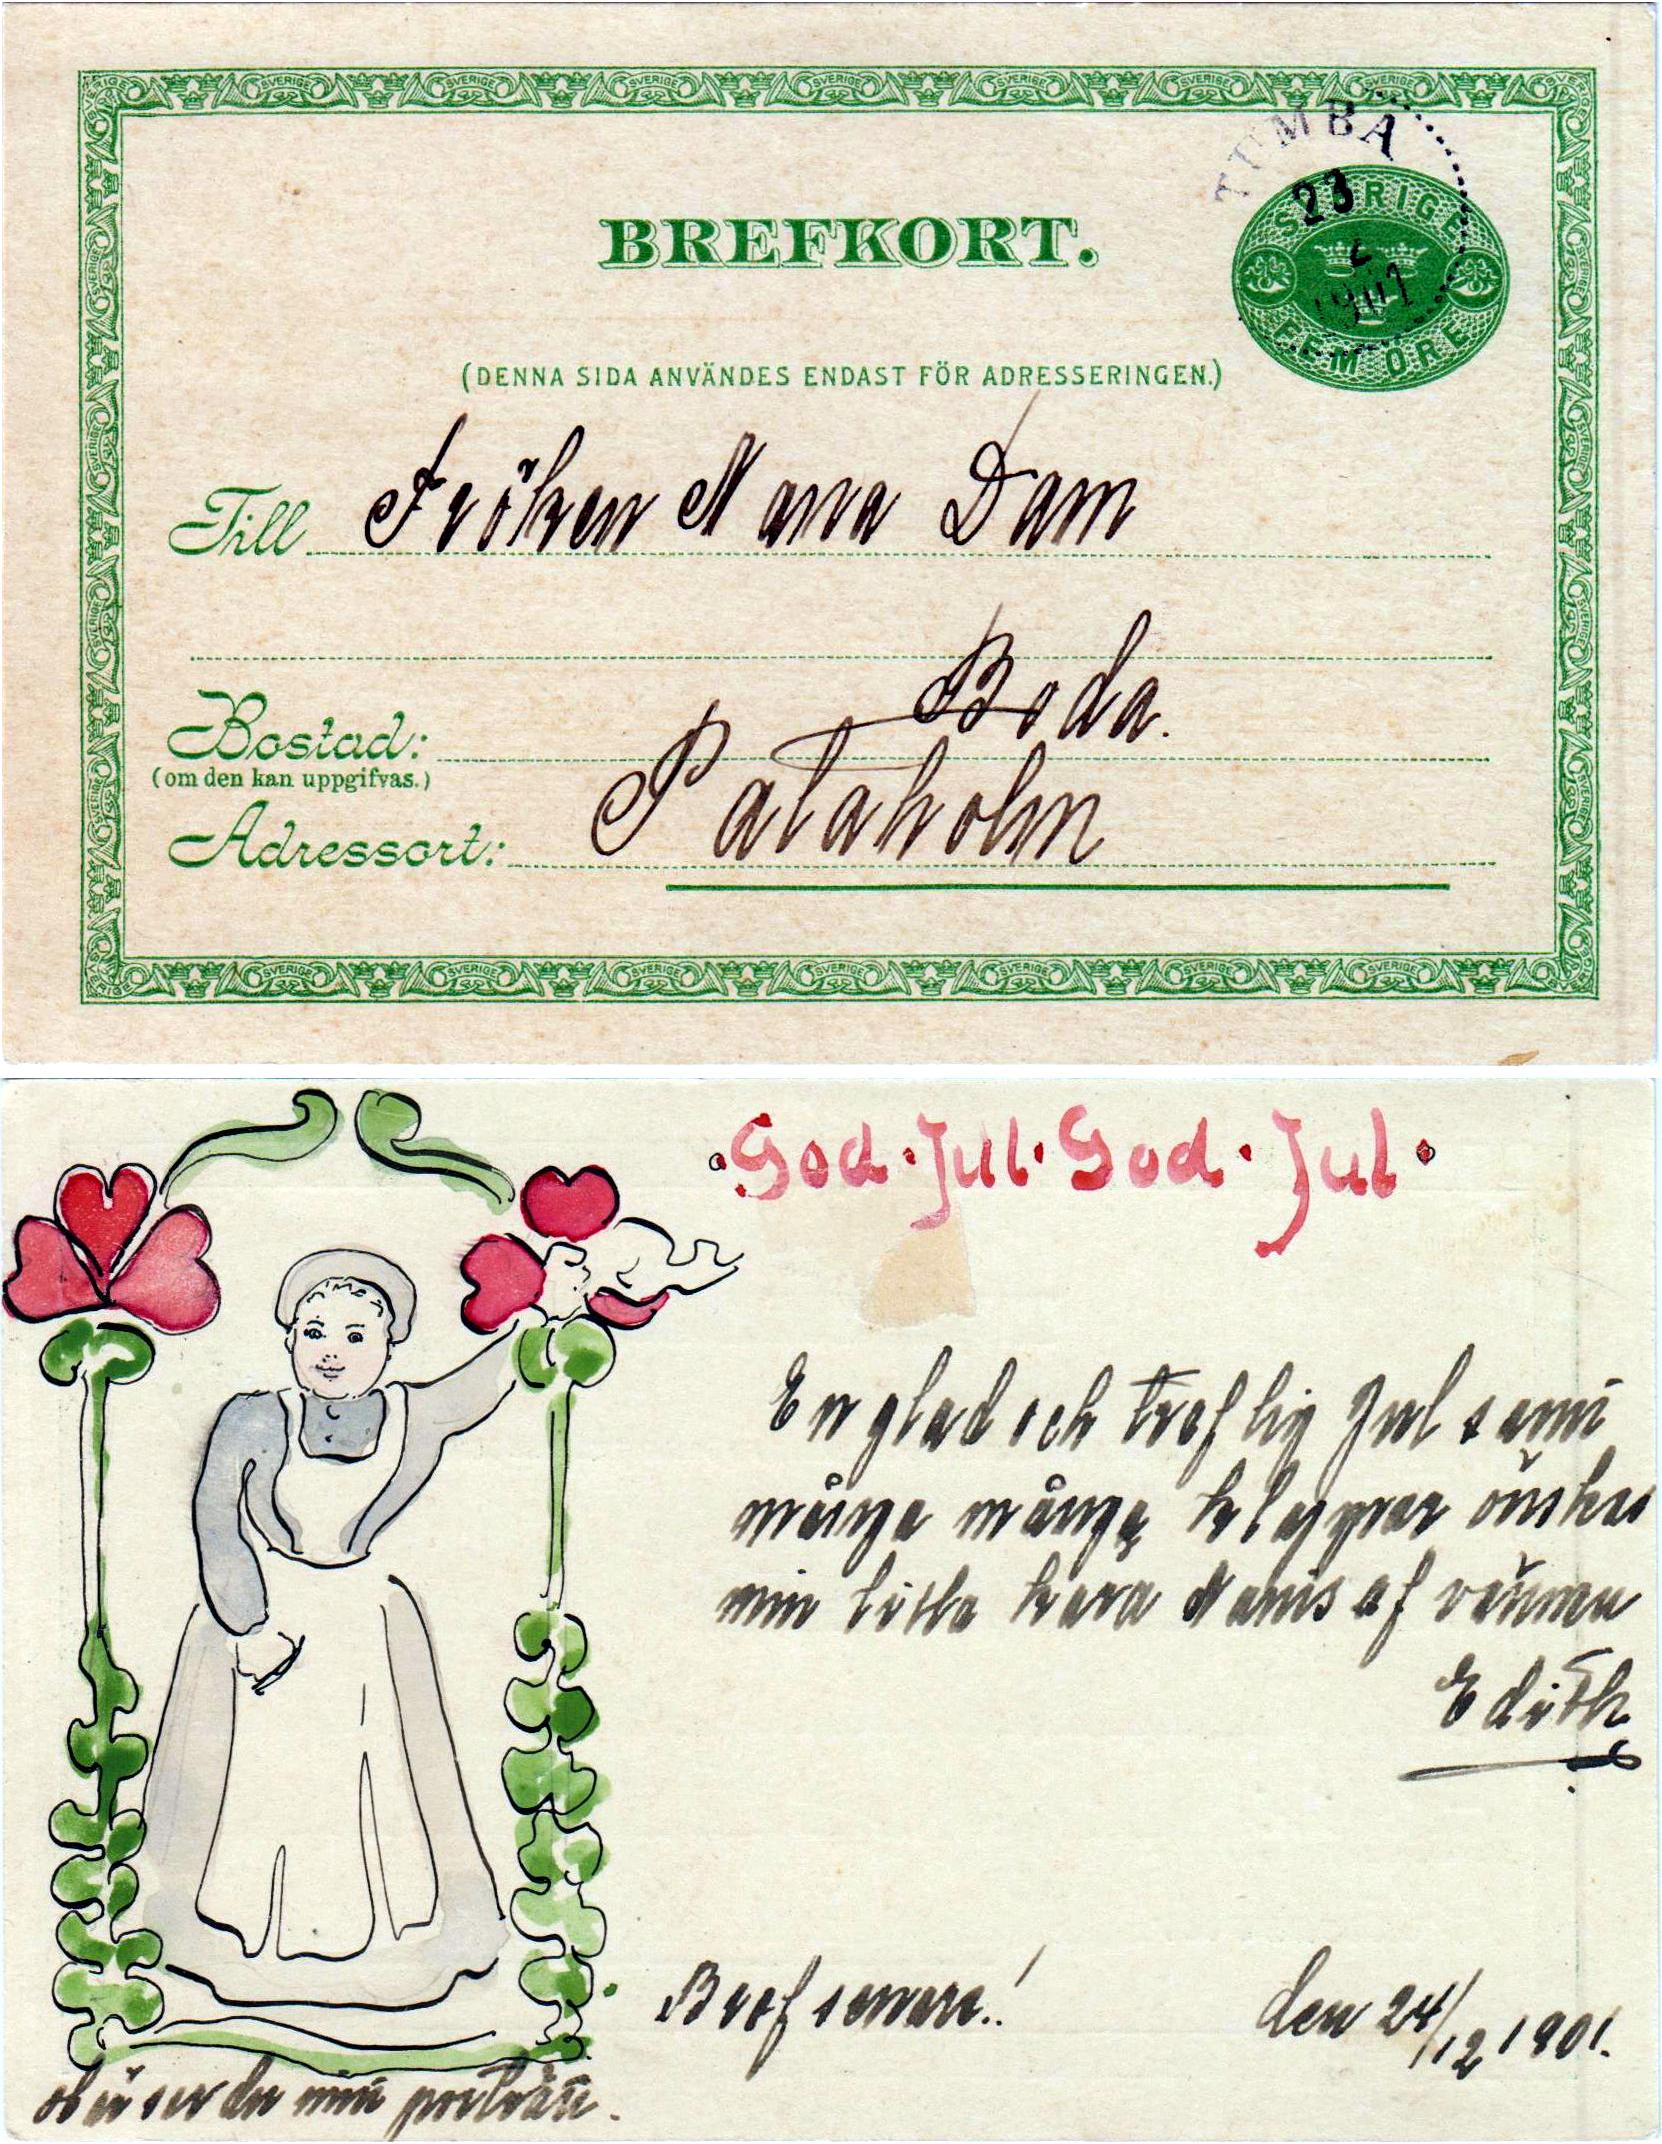 BREFKORT.
TUMBA
23
1901
SVERIGE
FEM ÖRE
(DENNA SIDA ANVÄNDES ENDAST FÖR ADRESSERINGEN.)
Till Fröken Nana Dam
Boda.
Bostad:
(om den kan uppgifvas.)
Adressort: Pataholm
·God·Jul·God·Jul·
En glad och treflig Jul samt
många många klappar önskas
min lilla kära Nanis af vännen
Edith
Bref senare!
den 24/12 1901.
här ser du mitt porträtt.